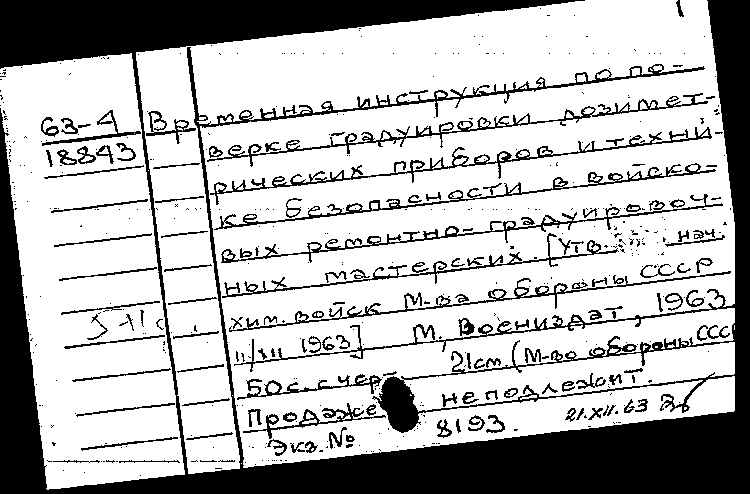 1
63-4 Временная инструкция по по-
18843 верке градуировки дозимет-
рических приборов и техни-
ке безопасности в войско-
вых ремонтно-градуировоч-
ных мастерских. [Утв. нач.
хим. войск М-ва обороны СССР
11/XII 1963] М., Воениздат, 1963
50 с. с черт. 21 см. (М-во обороны СССР
Продаже не подлежит.
Экз. № 8193. 21.XII.63